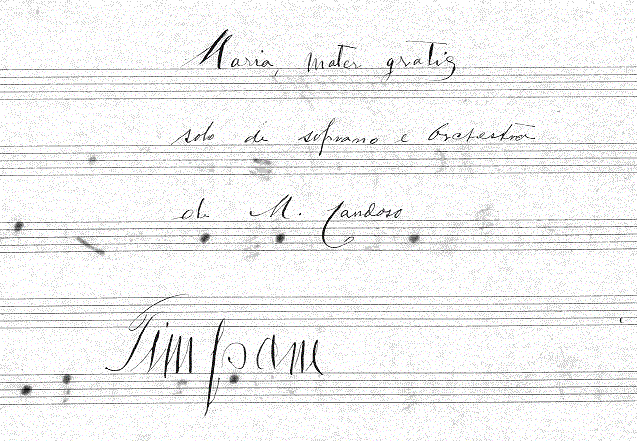 Maria, mater gratiæ
solo de soprano e Orchestra
de M. Cardoso
Timpani